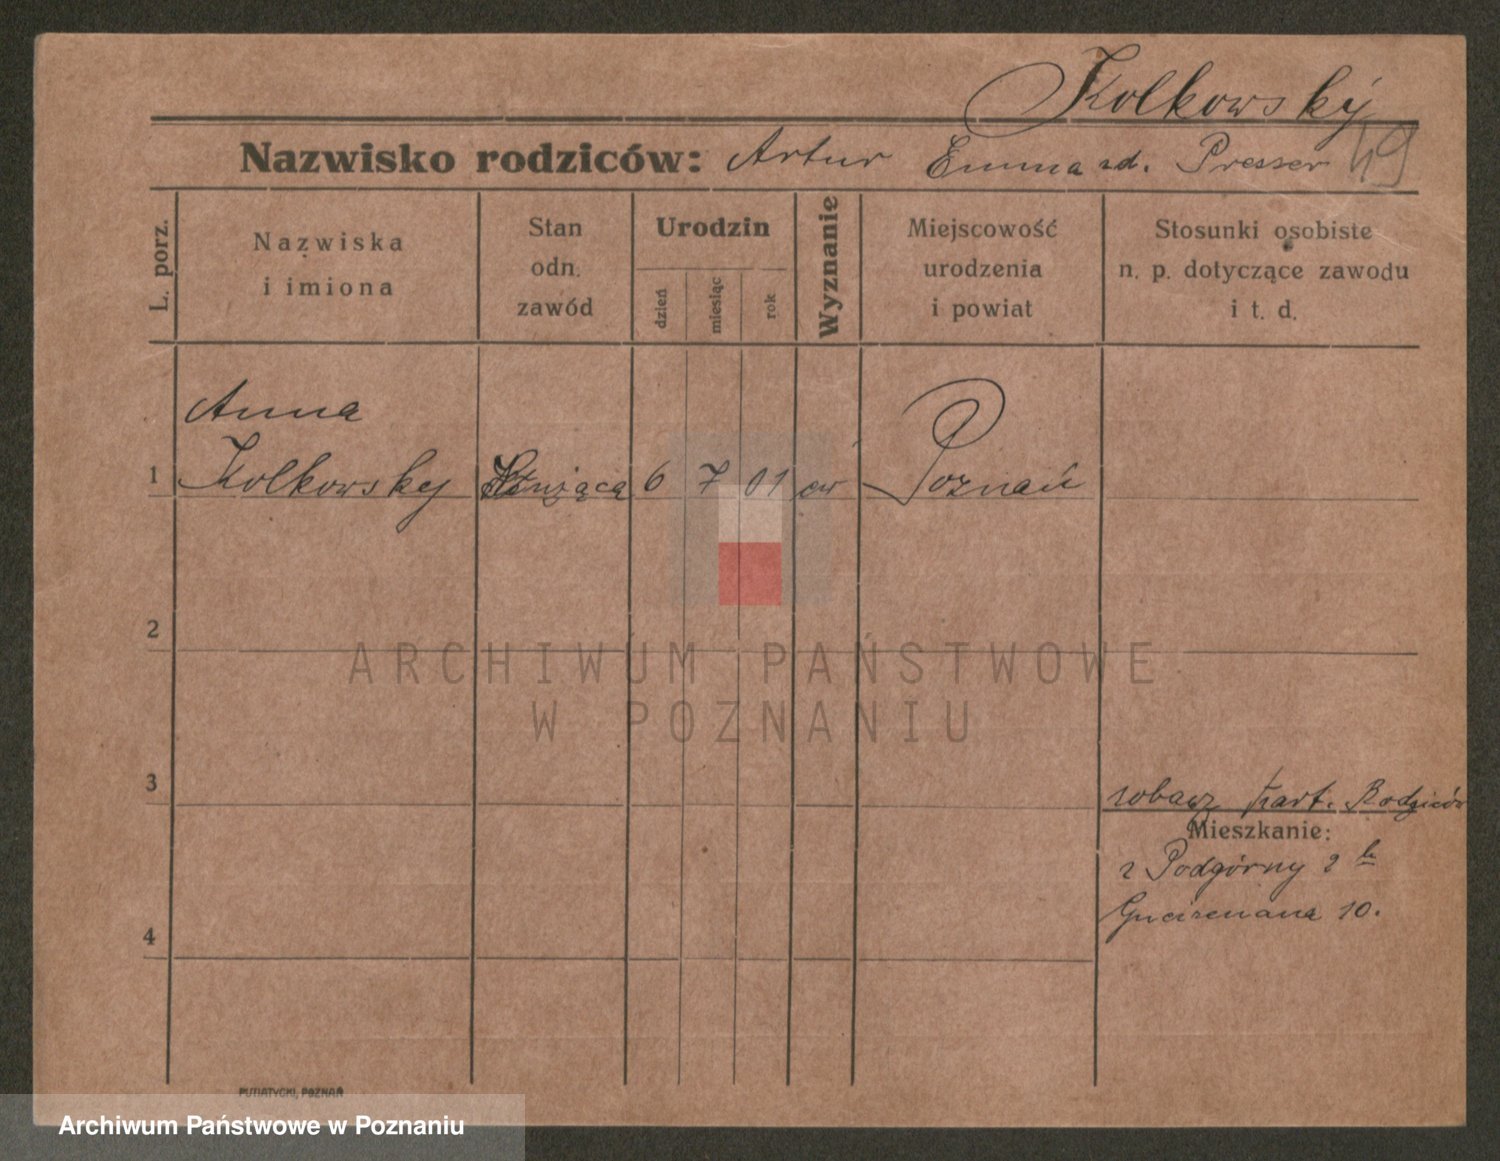 Kolkowsky
Nazwisko rodziców: Artur Emma zd. Presser 49
L. porz.
Nazwiska
i imiona
Stan
odn.
zawód
Urodzin
dzień
miesiąc
rok
Wyznanie
Miejscowość
urodzenia
i powiat
Stosunki osobiste
n. p. dotyczące zawodu
i t. d.
Anna
1 Kolkowsky Służąca 6 7 01 ew Poznań
2
ARCHIWUM PAŃSTWOWE
W POZNANIU
3
zobacz kart. Rodziców
Mieszkanie:
z Podgórny 2
Gnieźnieńska 10.
4
PUTIATYCKI, POZNAŃ
Archiwum Państwowe w Poznaniu